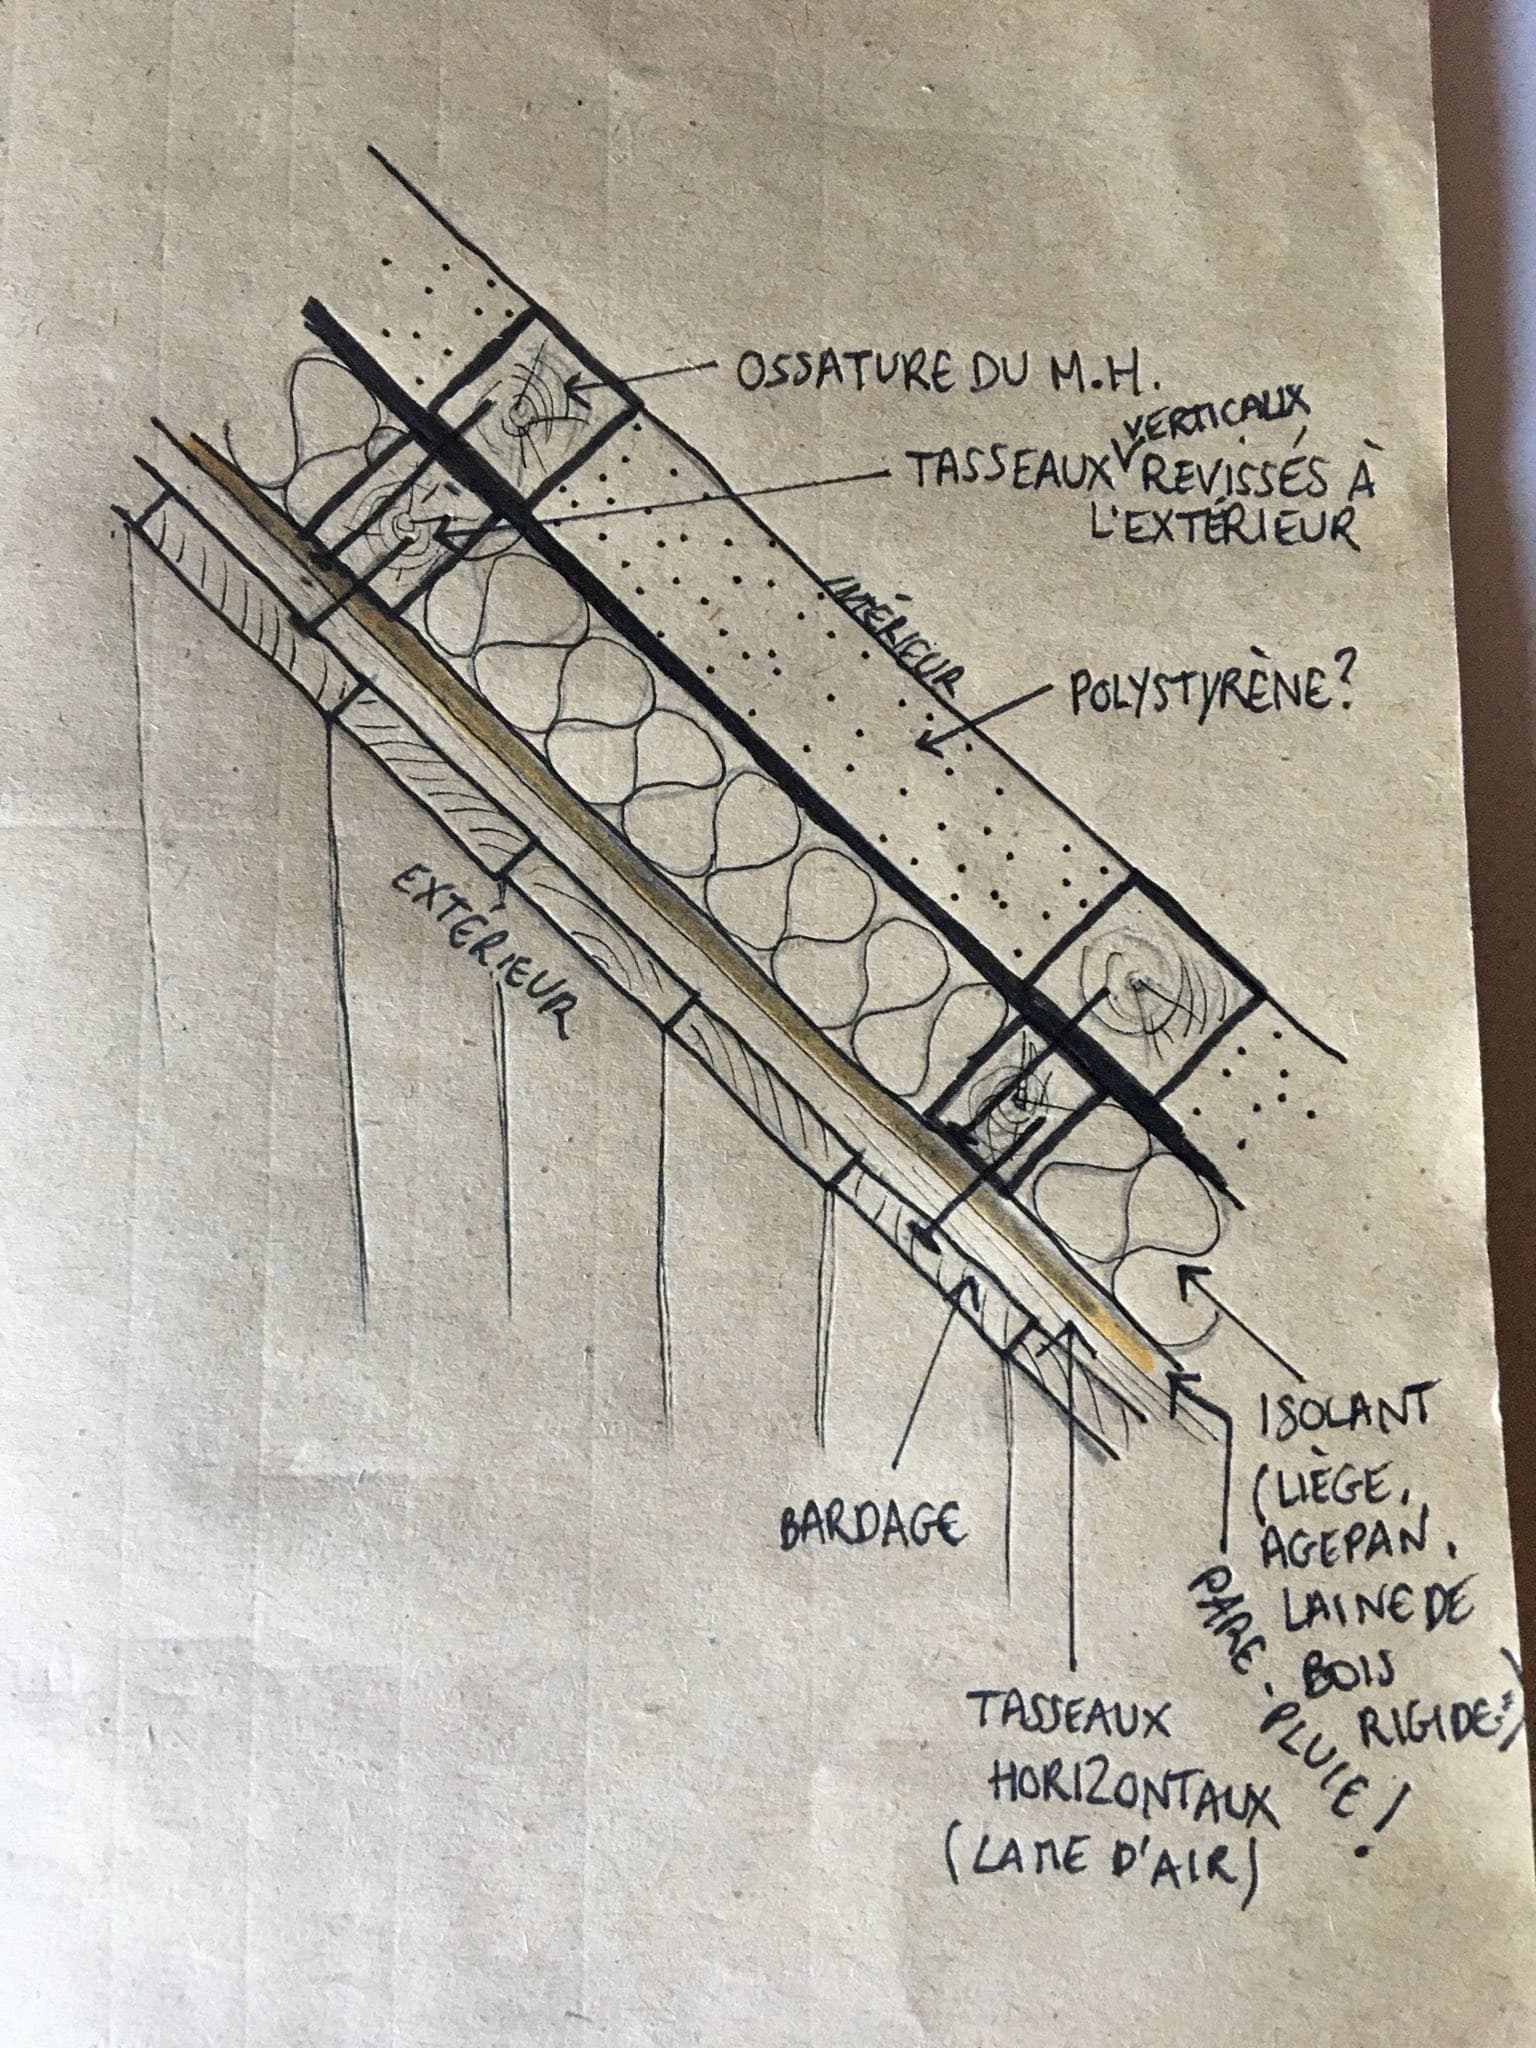 OSSATURE DU M.H.
VERTICAUX
TASSEAUX REVISSÉS À
L'EXTÉRIEUR
INTÉRIEUR
POLYSTYRÈNE?
EXTÉRIEUR
ISOLANT
(LIÈGE,
AGEPAN,
LAINE DE
BOIS
RIGIDE...)
PARE-PLUIE!
BARDAGE
TASSEAUX
HORIZONTAUX
(LAME D'AIR)